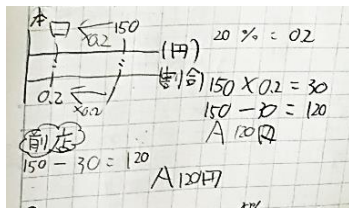 本
□ ← 150
×0.2
(円)
20 % = 0.2
(割合)
150 × 0.2 = 30
0.2
×0.2
150 - 30 = 120
A 120円
前店
150 - 30 = 120
A 120円